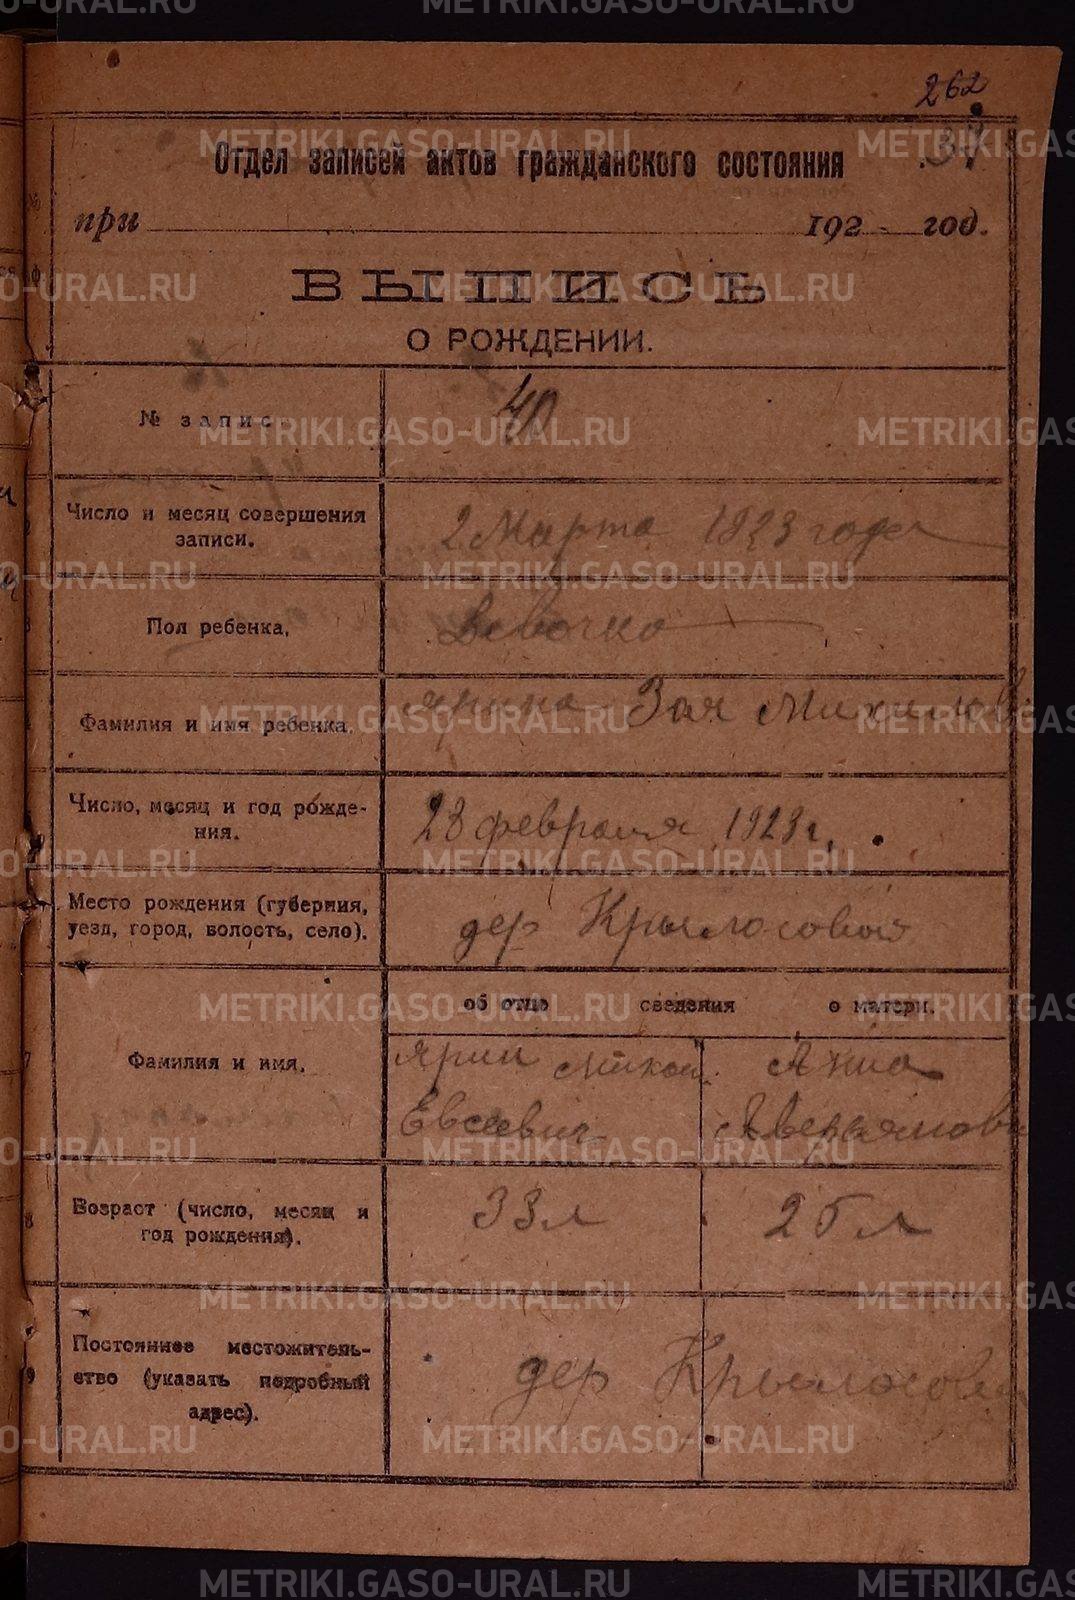 262
37
Отдел записей актов гражданского состояния
при 192 год.
ВЫПИСЬ
О РОЖДЕНИИ.
№ запис 40
Число и месяц совершения
записи.
2 Марта 1923 года
Пол ребенка. Девочка
Фамилия и имя ребенка. Ярина Зоя
Число, месяц и год рожде-
ния.
28 февраля 1923 г.
Место рождения (губерния,
уезд, город, волость, село).
дер Крылосовой
об отце сведения о матери.
Фамилия и имя.
Ярин
Евсеевич
Анна
Возраст (число, месяц и
год рождения).
33 л
25 л
Постоянное местожитель-
ство (указать подробный
адрес).
дер Крылосовой
METRIKI.GASO-URAL.RU